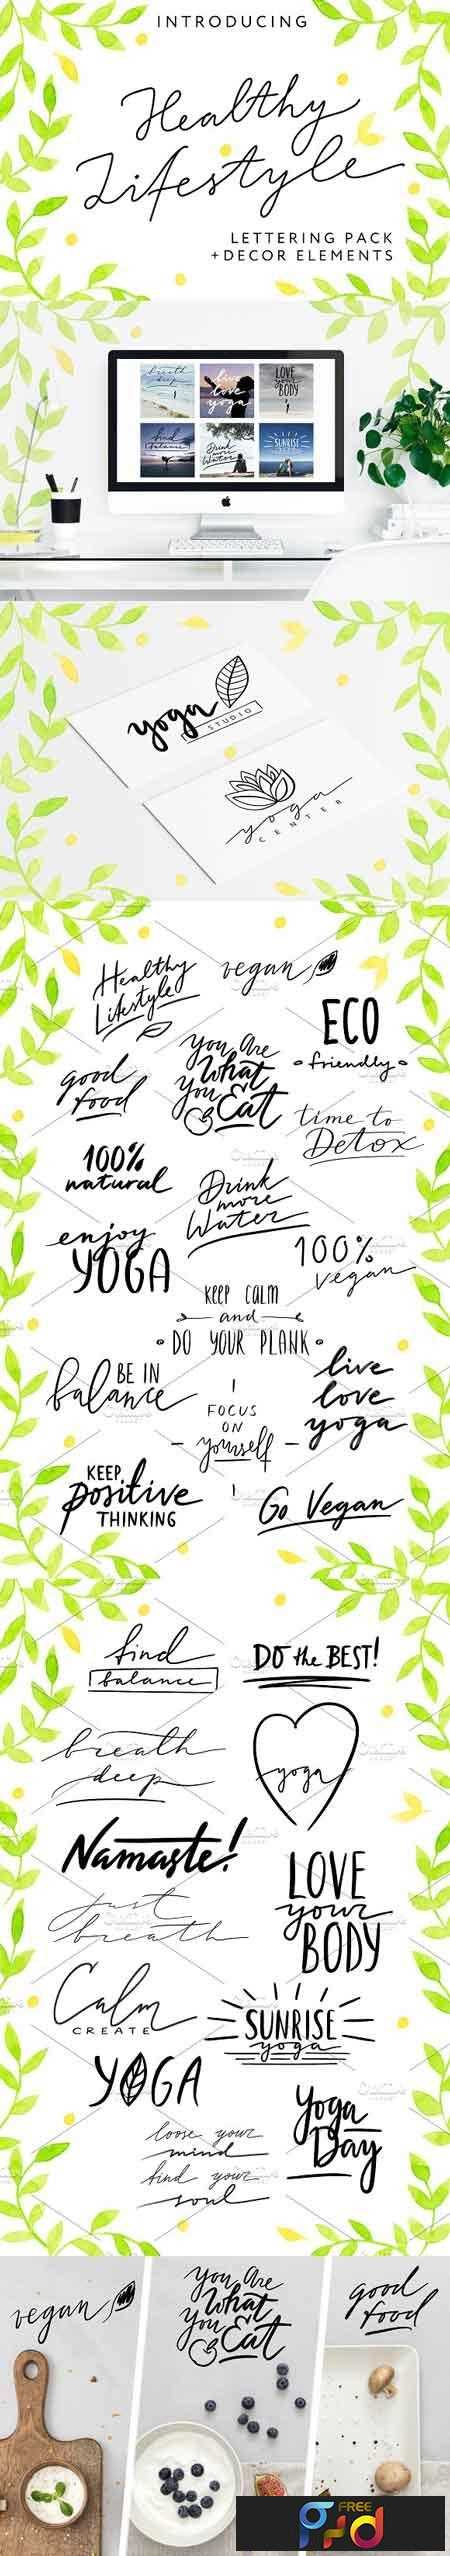 INTRODUCING
Healthy
Lifestyle
LETTERING PACK
+DECOR ELEMENTS
breath
deep
live
love
yoga
LOVE
your
BODY
find
balance
Drink
more
Water
SUNRISE
yoga
yoga
STUDIO
yoga
CENTER
Healthy
Lifestyle
vegan
ECO
friendly
good
food
You Are
What
you
Eat
time to
Detox
100%
natural
Drink
more
Water
enjoy
YOGA
100%
vegan
KEEP CALM
and
DO YOUR PLANK
BE IN
balance
live
love
yoga
FOCUS
ON
yourself
KEEP
positive
THINKING
Go Vegan
find
balance
DO the BEST!
breath
deep
yoga
Namaste!
LOVE
your
BODY
just
breath
Calm
CREATE
SUNRISE
yoga
YOGA
Yoga
Day
loose your
mind
find your
soul
vegan
You Are
What
you
Eat
good
food
FREE